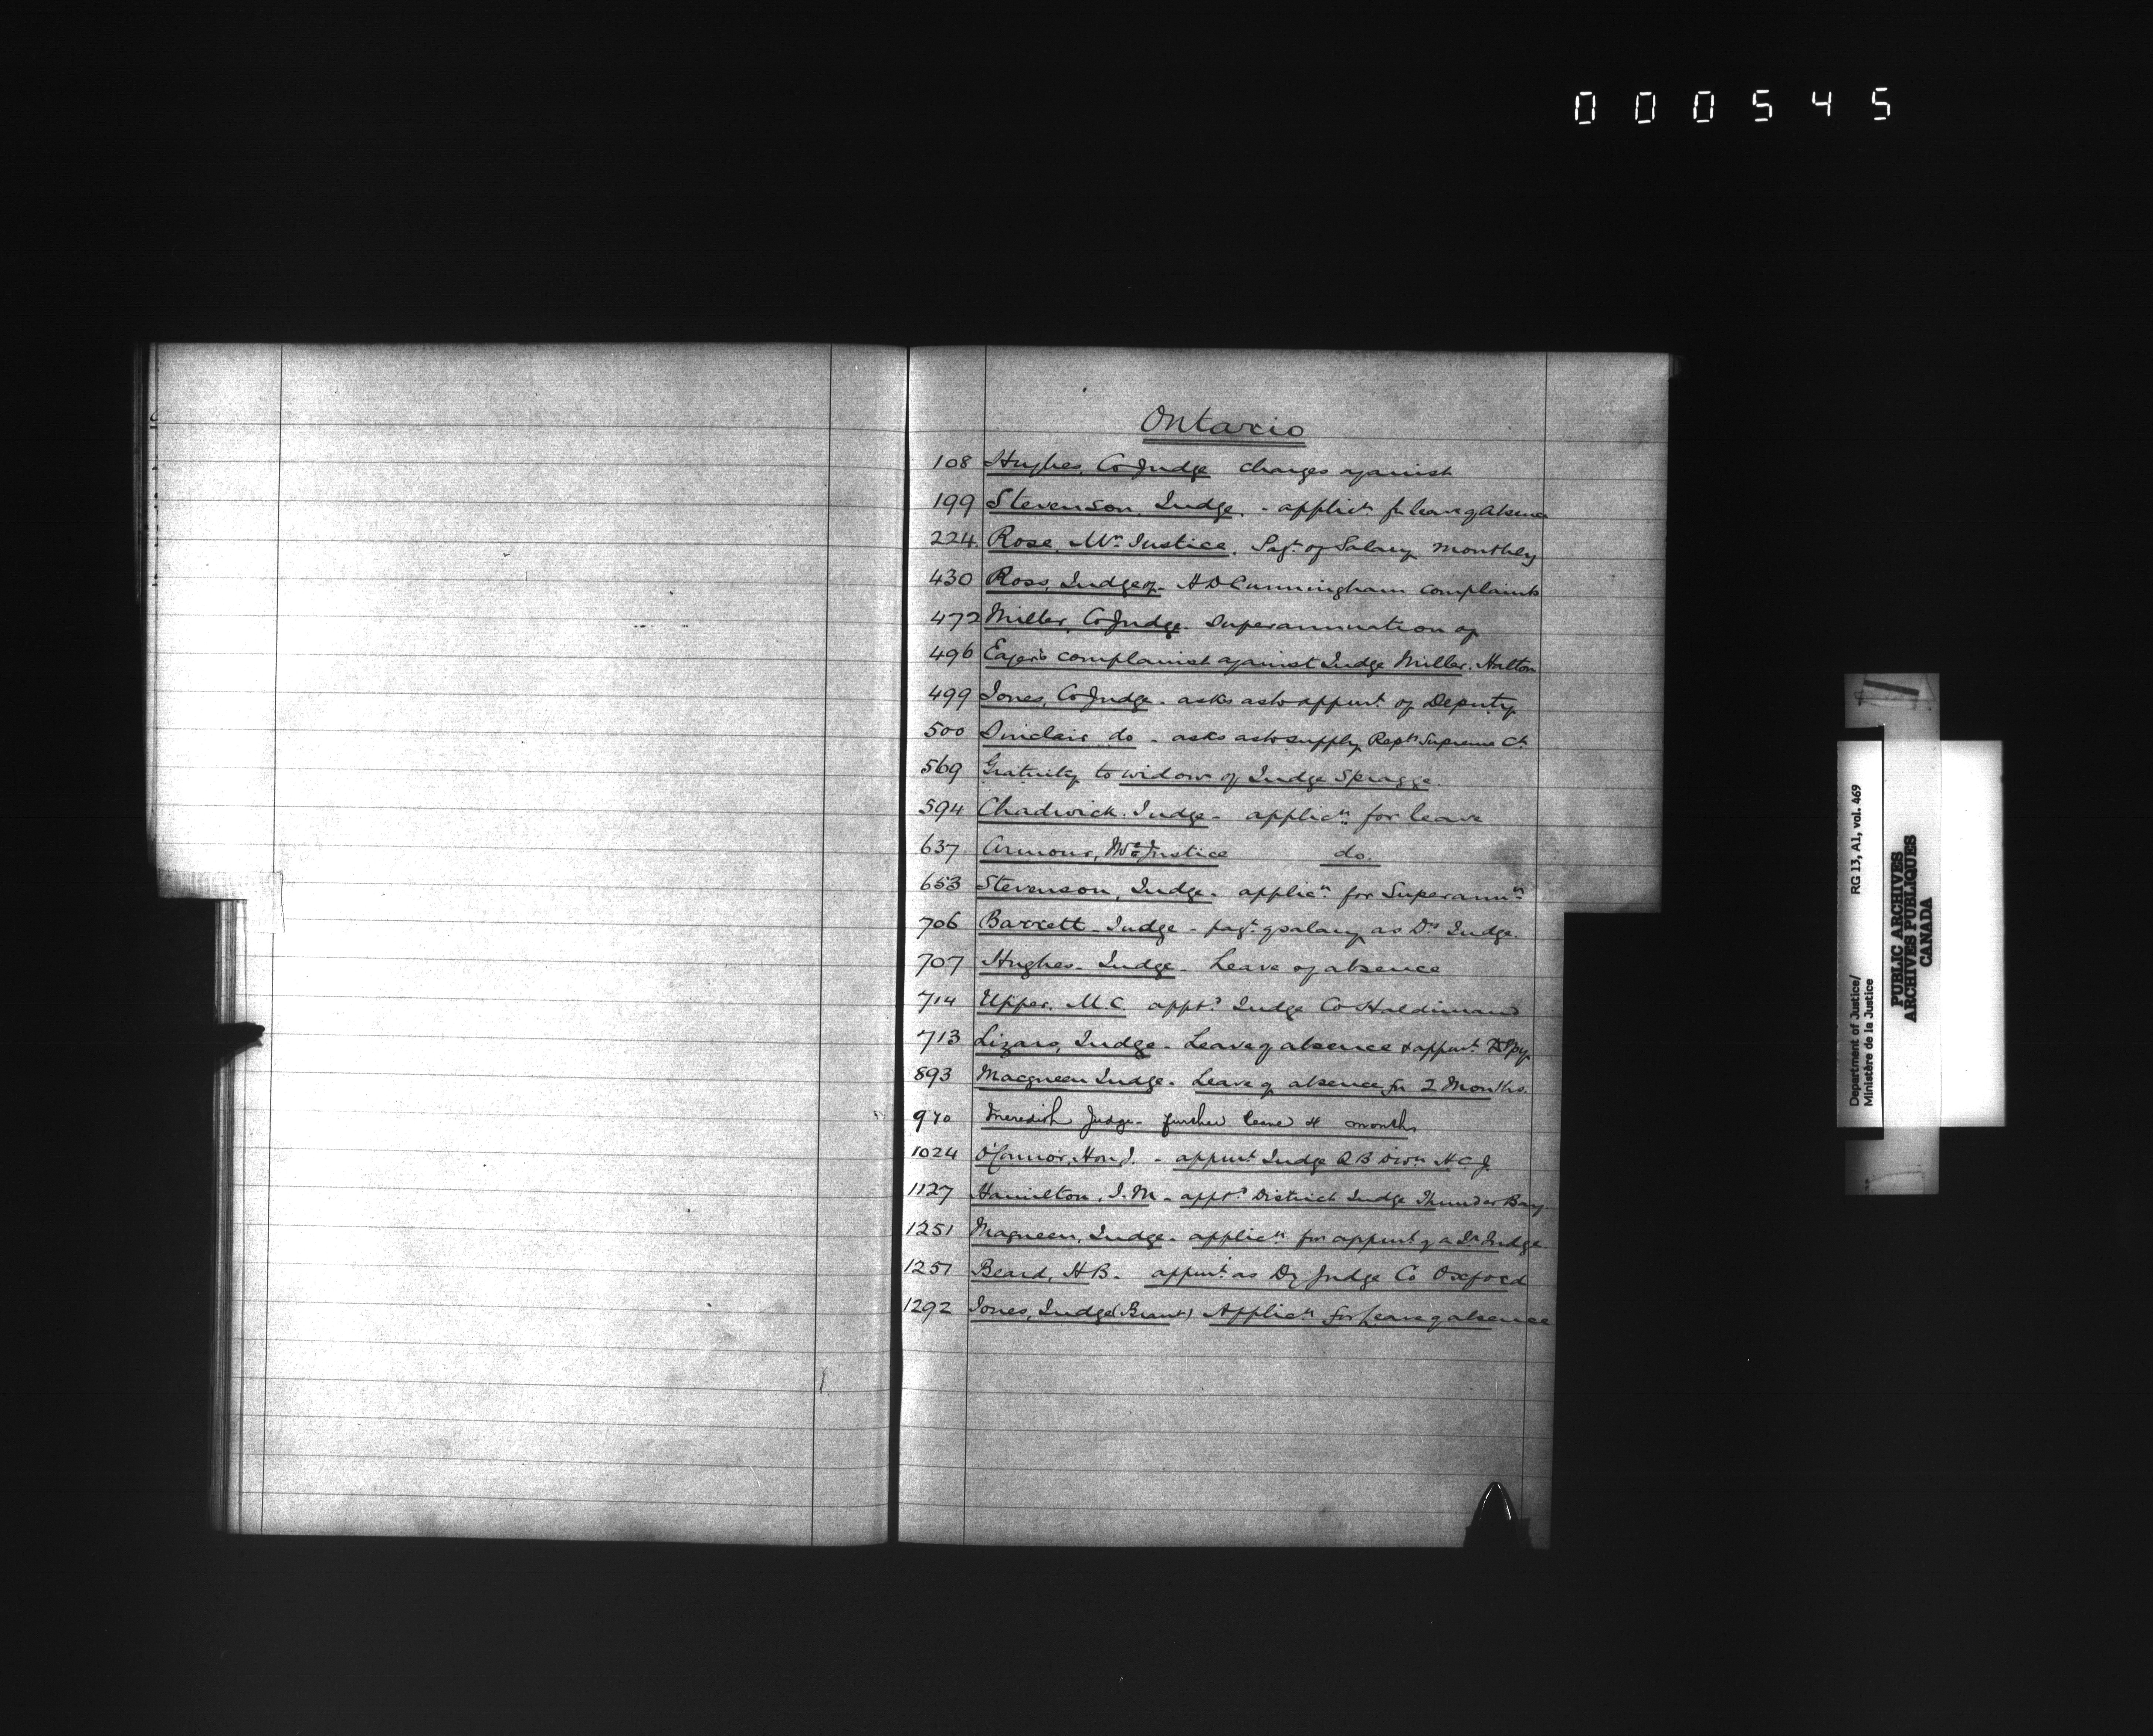 000545
Ontario
108 Hughes, Co Judge charges against
199 Stevenson, Judge. - applicn for leave of Absence
224. Rose, Mr Justice. Payt of Salary monthly
430 Ross, Judge of - H D Cunningham complaints
472 Miller, Co Judge. Superannuation of
496 Eager's complaint against Judge Miller. Halton
499 Jones, Co Judge. asks as to appmt of Deputy
500 Sinclair do - asks as to supply Repts Supreme Ct
569 Gratuity to widow of Judge Spragge.
594 Chadwick. Judge - applicn for leave
637 Armour, Mr Justice do.
653 Stevenson, Judge. applicn for Superannn
706 Barrett - Judge - payt of salary as Dy Judge.
707 Hughes - Judge - Leave of absence
714 Upper. M.C. appt Judge Co Haldimand
713 Lizars, Judge - Leave of absence & appmt Dpy
893 Macqueen Judge. Leave of absence for 2 Months.
970 Meredith Judge - further leave 4 months
1024 O'Connor, Hon J. - appmt Judge QB Divn H.C.J.
1127 Hamilton, J. M - appt District Judge Thunder Bay.
1251 Maqueen, Judge. applicn for appmt of a Jr Judge.
1257 Beard, H B. appmt as Dy Judge Co Oxford
1292 Jones, Judge (Brant) Applicn for leave of absence
Department of Justice/ RG 13, A1, vol. 469
Ministère de la Justice
PUBLIC ARCHIVES
ARCHIVES PUBLIQUES
CANADA